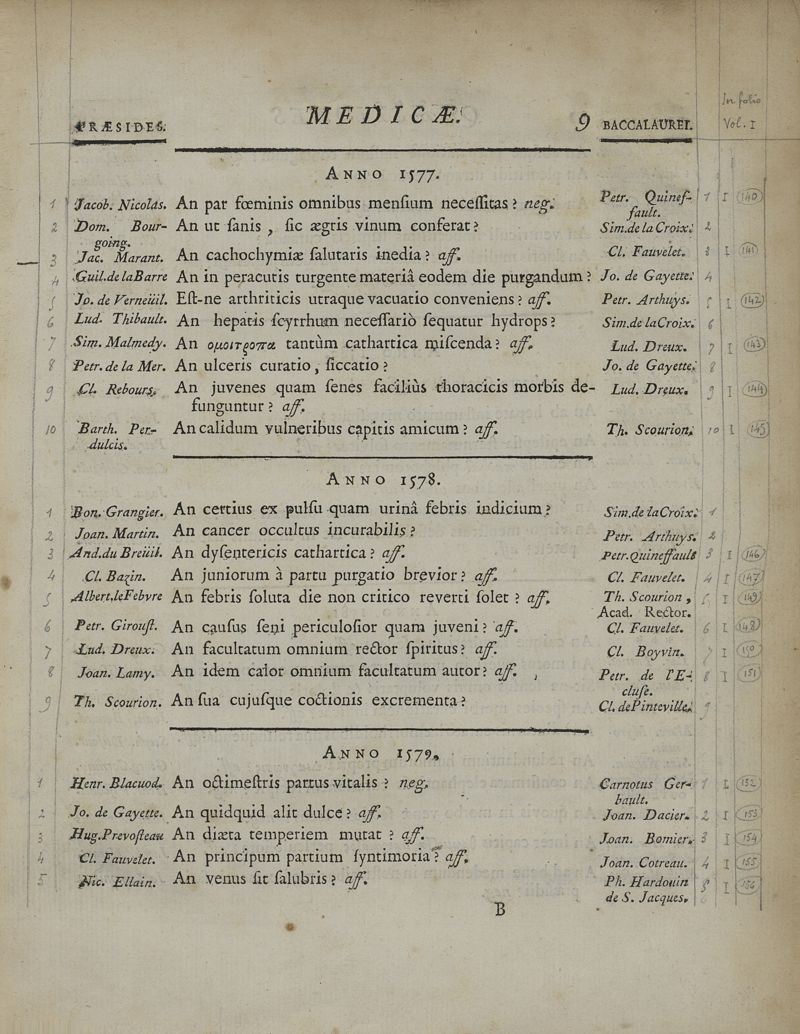 In folio
MEDICÆ. 9
PRÆSIDES. BACCALAUREI. Vol. I
ANNO 1577.
1 Jacob. Nicolas. An par fœminis omnibus menſium neceſſitas? neg. Petr. Quineſ- 1 I 140
fault.
2 Dom. Bour- An ut ſanis, ſic ægris vinum conferat? Sim.de la Croix. 2
going.
3 Jac. Marant. An cachochymiæ ſalutaris inedia? aff. Cl. Fauvelet. 3 I 141
4 Guil.de laBarre An in peracutis turgente materiâ eodem die purgandum? Jo. de Gayette. 4
5 Jo. de Verneüil. Eſt-ne arthriticis utraque vacuatio conveniens? aff. Petr. Arthuys. 5 I 142
6 Lud. Thibault. An hepatis ſcyrrhum neceſſariò ſequatur hydrops? Sim.de laCroix. 6
7 Sim. Malmedy. An tantùm cathartica miſcenda? aff. Lud. Dreux. 7 I 143
8 Petr. de la Mer. An ulceris curatio, ſiccatio? Jo. de Gayette. 8
9 Cl. Rebours. An juvenes quam ſenes faciliùs thoracicis morbis de- Lud. Dreux. 9 I 144
funguntur? aff.
10 Barth. Per- An calidum vulneribus capitis amicum? aff. Th. Scourion. 10 I 145
dulcis.
ANNO 1578.
1 Bon. Grangier. An certius ex pulſu quam urinâ febris indicium? Sim.de laCroix. 1
2 Joan. Martin. An cancer occultus incurabilis? Petr. Arthuys. 2
3 And.du Breüil. An dyſentericis cathartica? aff. Petr.Quineffault 3 I 146
4 Cl. Bazin. An juniorum à partu purgatio brevior? aff. Cl. Fauvelet. 4 I 147
5 Albert.leFebvre An febris ſoluta die non critico reverti ſolet? aff. Th. Scourion, 5 I 149
Acad. Rector.
6 Petr. Girouſt. An cauſus ſeni periculoſior quam juveni? aff. Cl. Fauvelet. 6 I 148
7 Lud. Dreux. An facultatum omnium rector ſpiritus? aff. Cl. Boyvin. 7 I 150
8 Joan. Lamy. An idem calor omnium facultatum autor? aff. Petr. de l'E- 8 I 151
cluſe.
9 Th. Scourion. An ſua cujuſque coctionis excrementa? Cl. dePinteville. 9
ANNO 1579.
1 Henr. Blacuod. An octimeſtris partus vitalis? neg. Carnotus Ger- 1 I 152
bault.
2 Jo. de Gayette. An quidquid alit dulce? aff. Joan. Dacier. 2 I 153
3 Hug.Prevoſteau An diæta temperiem mutat? aff. Joan. Bomier. 3 I 154
4 Cl. Fauvelet. An principum partium ſyntimoria? aff. Joan. Cotreau. 4 I 155
5 Nic. Ellain. An venus ſit ſalubris? aff. Ph. Hardouin 5 I 156
de S. Jacques.
B